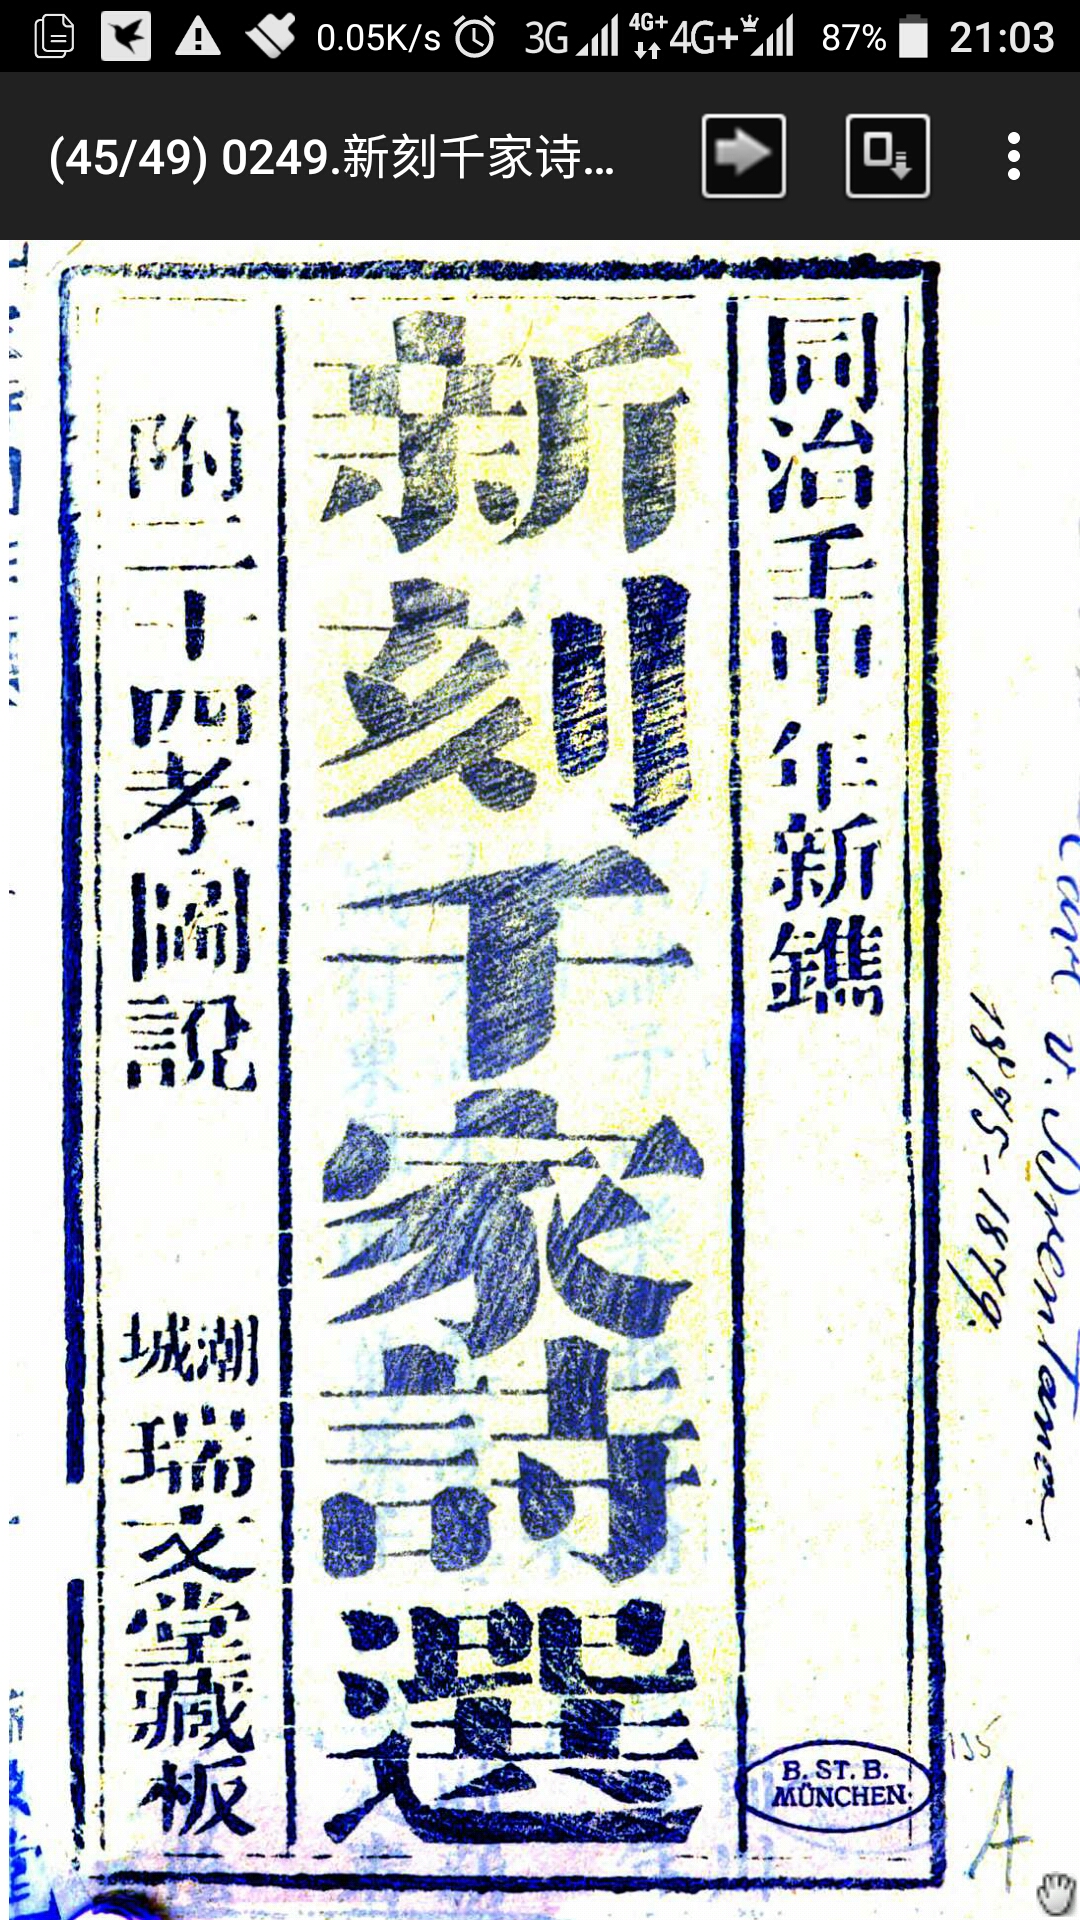 0.05K/s 3G 4G+ 4G+ 87% 21:03
(45/49) 0249.新刻千家诗...
同治壬申年新鐫
新刻千家詩選
附二十四孝圖說
潮城瑞文堂藏板
v. Brentano.
1875-1879.
B. ST. B.
MÜNCHEN.
135
A